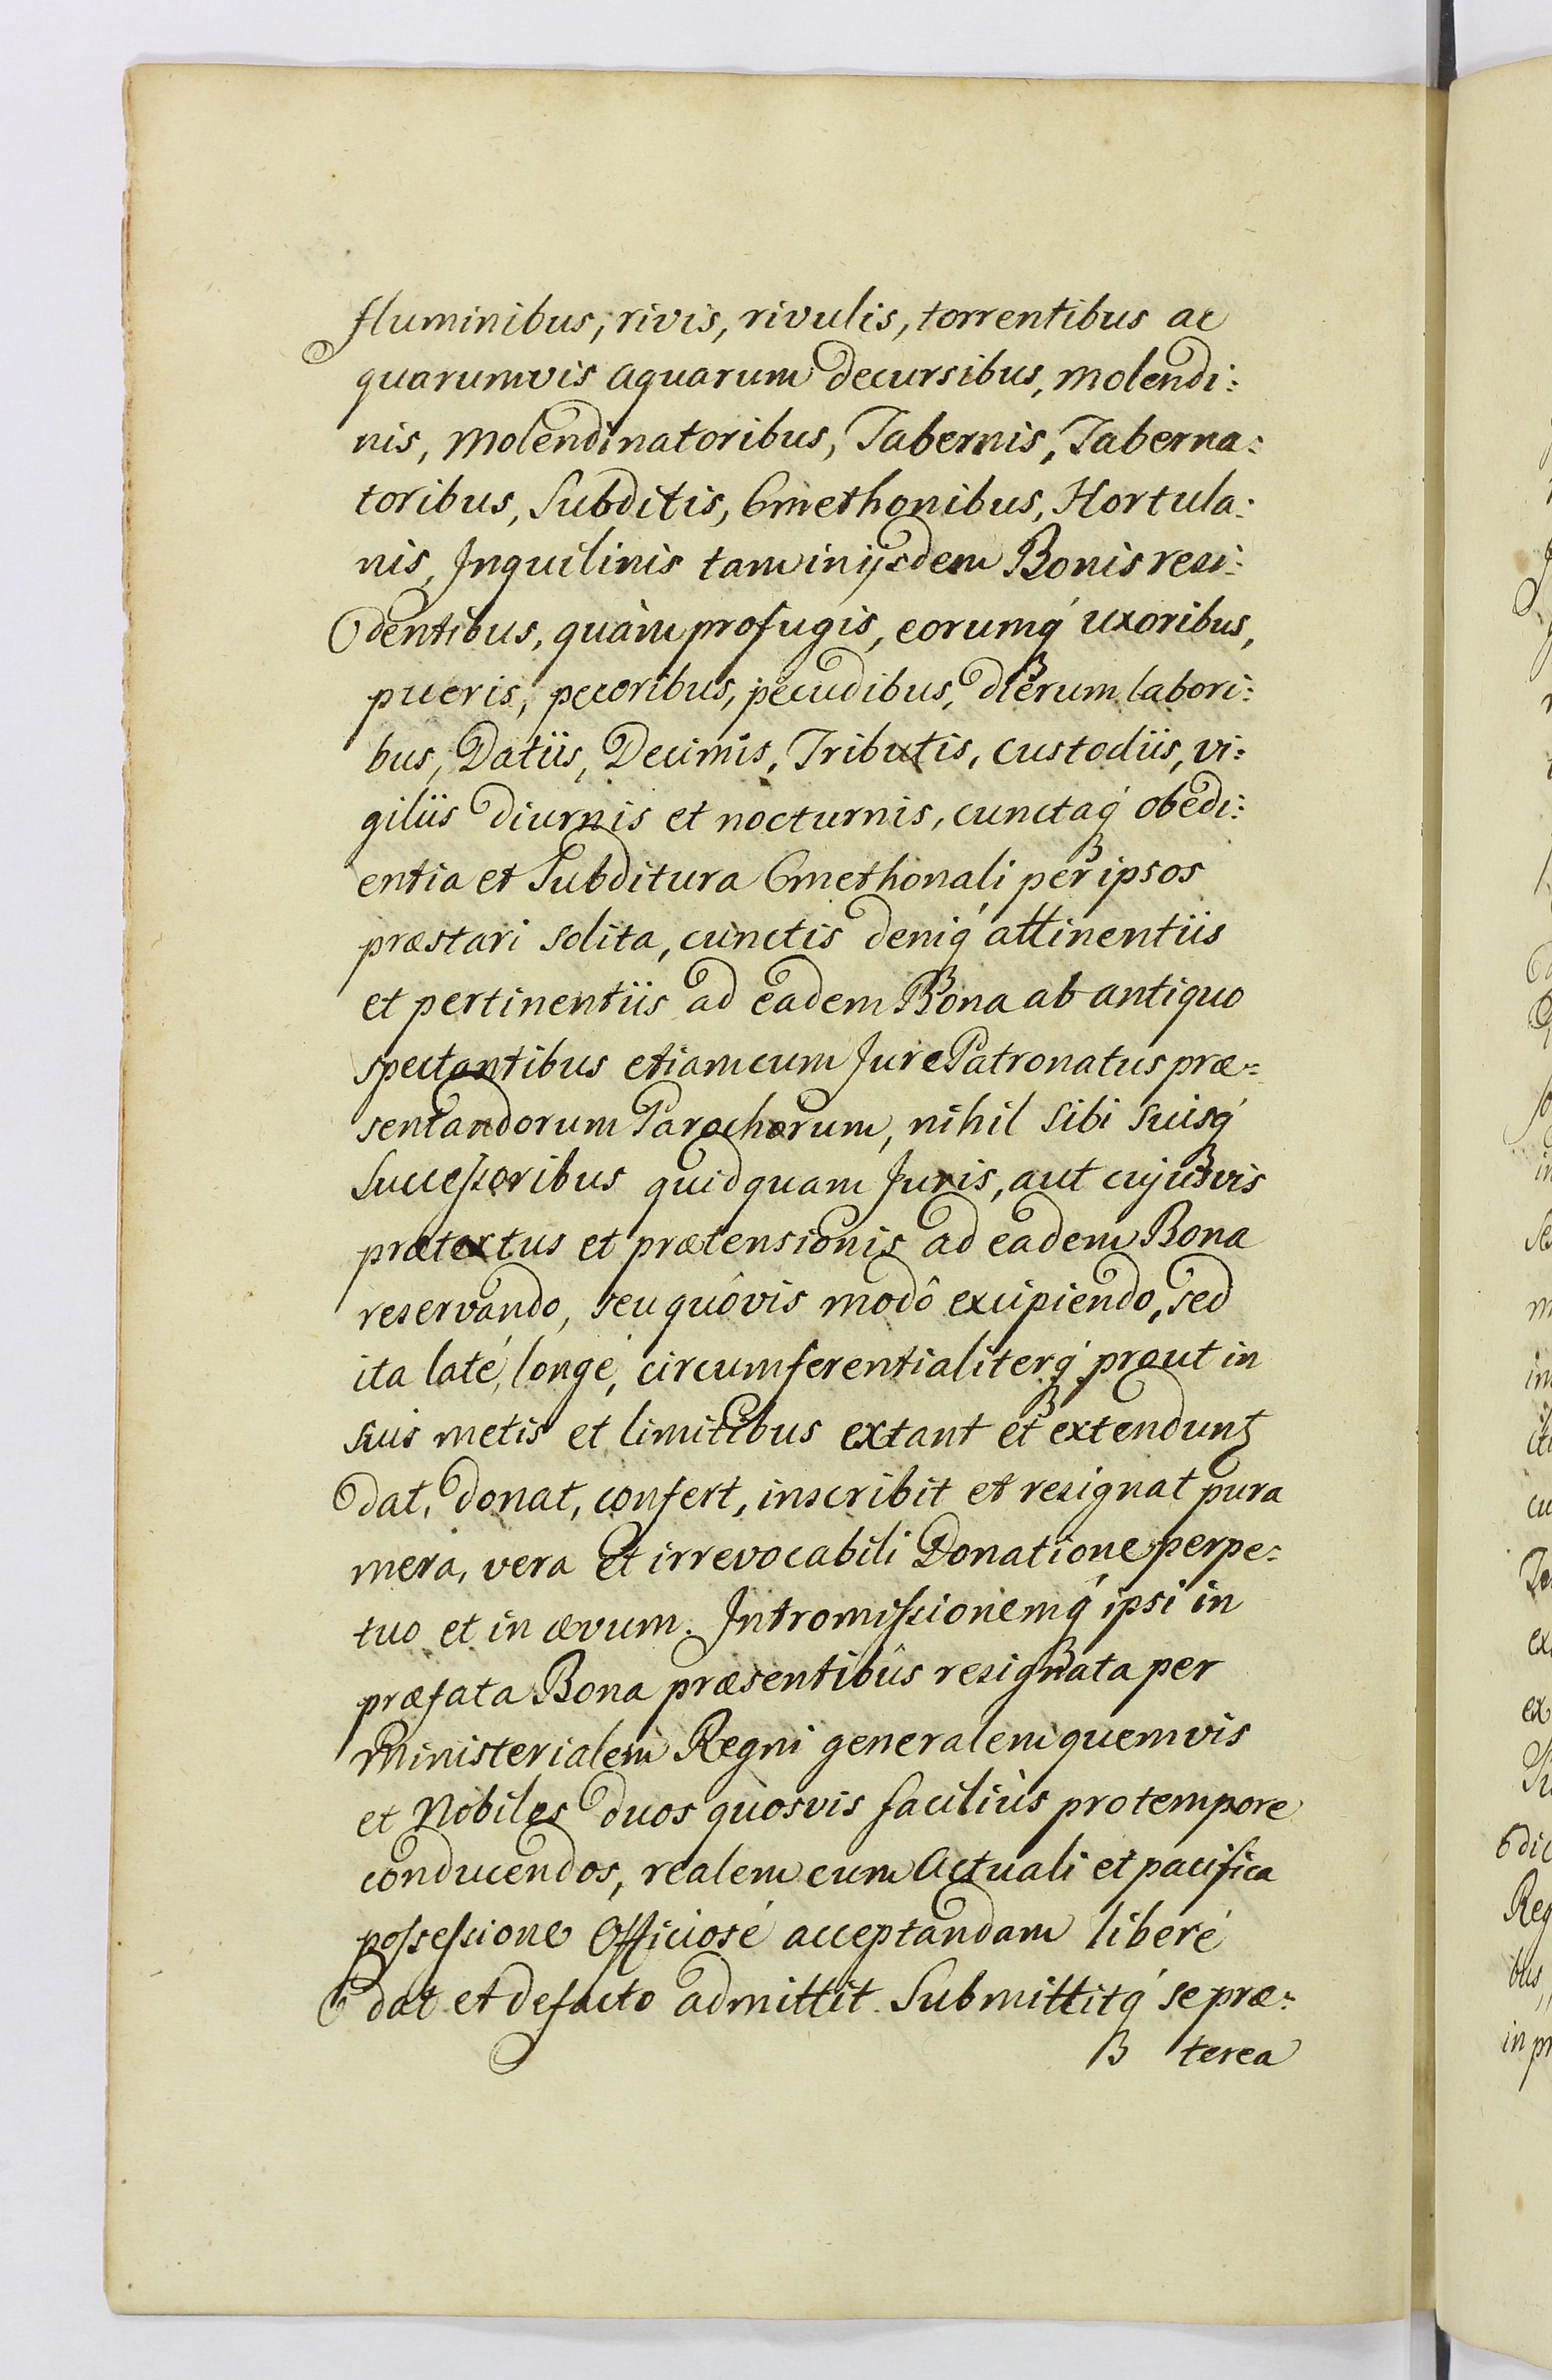 fluminibus, rivis, rivulis, torrentibus ac
quarumvis aquarum decursibus, molendi:
nis, Molendinatoribus, Tabernis, Taberna:
toribus, Subditis, Cmethonibus, Hortula:
nis, Inquilinis tam in ijsdem Bonis resi:
dentibus, quàm profugis, eorumq́ uxoribus,
pueris, pecoribus, pecudibus, dierum labori:
bus, Datiis, Decimis, Tributis, custodiis, vi:
giliis diurnis et nocturnis, cunctaq́ obedi:
entia et Subditura Cmethonali per ipsos
præstari solita, cunctis deniq́ attinentiis
et pertinentiis ad eadem Bona ab antiquo
spectantibus etiam cum Jure Patronatus præ:
sentandorum Parochorum, nihil sibi suisq́
Successoribus quidquam Juris, aut cujusvis
prætextus et prætensionis ad eadem Bona
reservando, seu quôvis modô excipiendo, sed
ita laté, longé, circumferentialiterq́ prout in
suis metis et limitibus extant et extendunꝫ
dat, donat, confert, inscribit et resignat pura
mera, vera et irrevocabili Donatione perpe:
tuo et in ævum. Intromissionemq́ ipsi in
præfata Bona præsentibûs resignata per
Ministerialem Regni generalem quemvis
et Nobiles duos quosvis faciliùs pro tempore
conducendos, realem cum Actuali et pacifica
possessione Officiosé acceptandam liberé
dat et defacto admittit. Submittitq́ se præ:
B terea